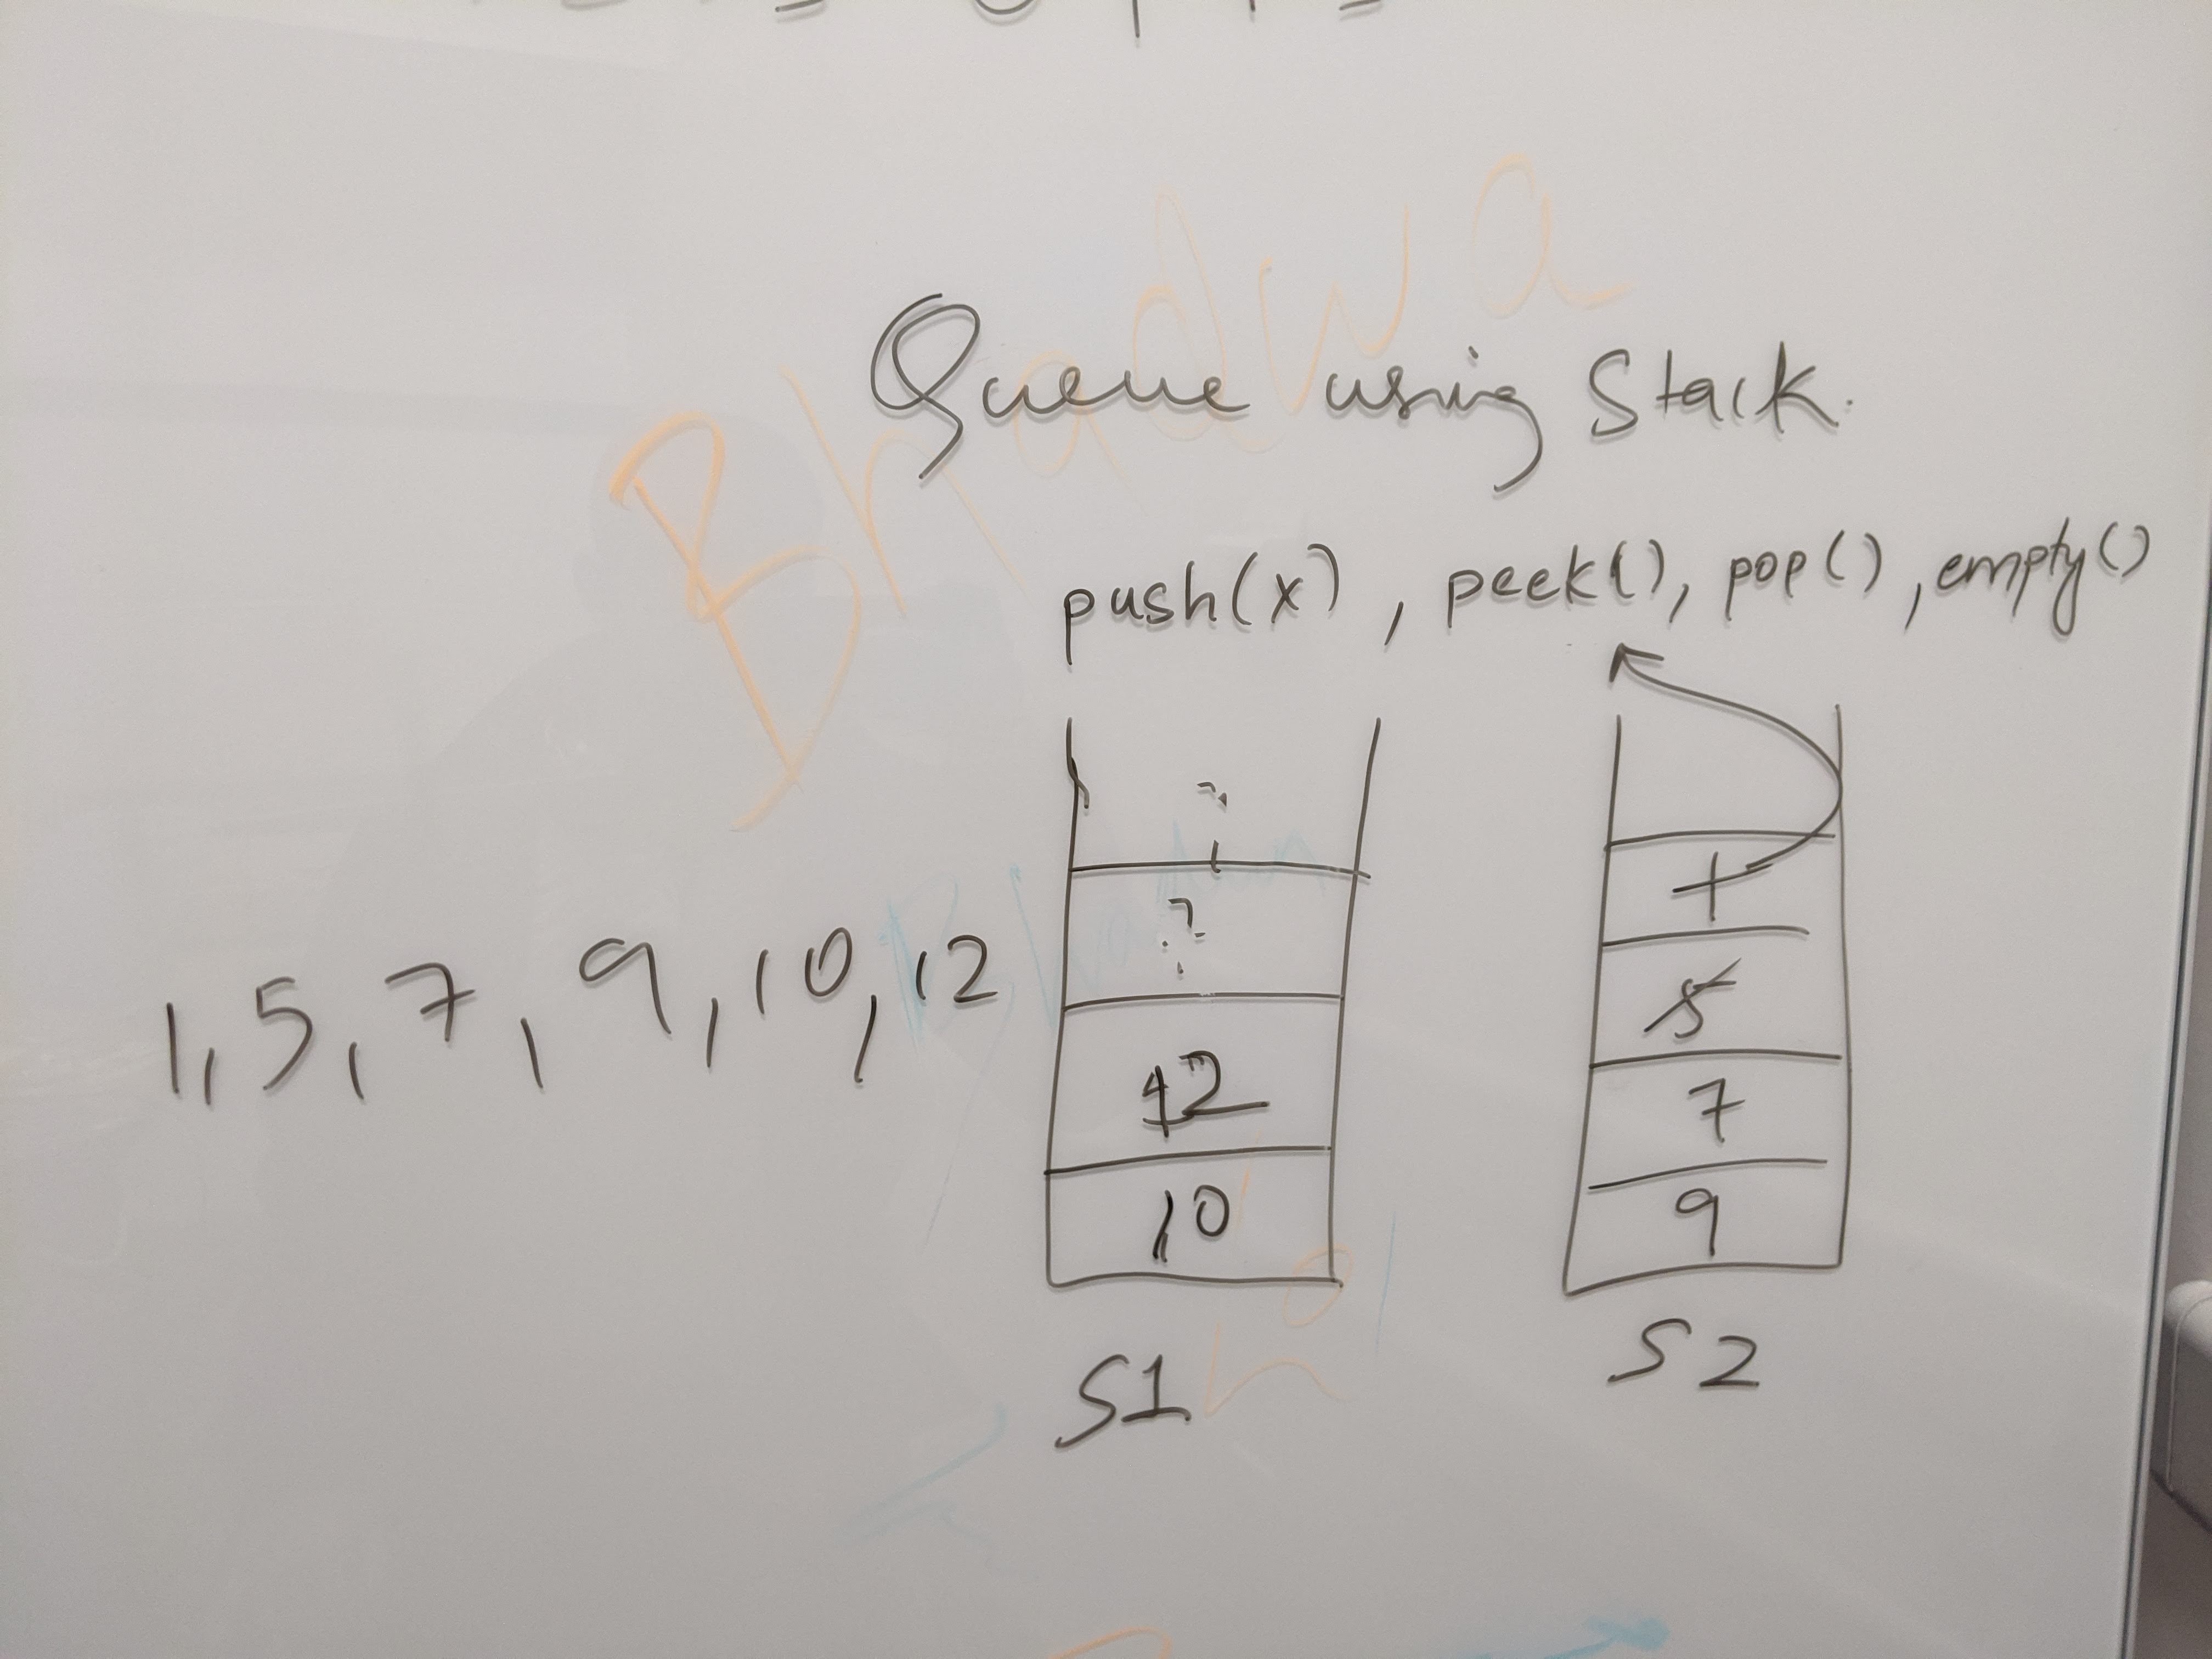 Bhadwa
Queue using Stack.
push(x), peek(), pop(), empty()
1, 5, 7, 9, 10, 12
12
10
S1
1
5
7
9
S2